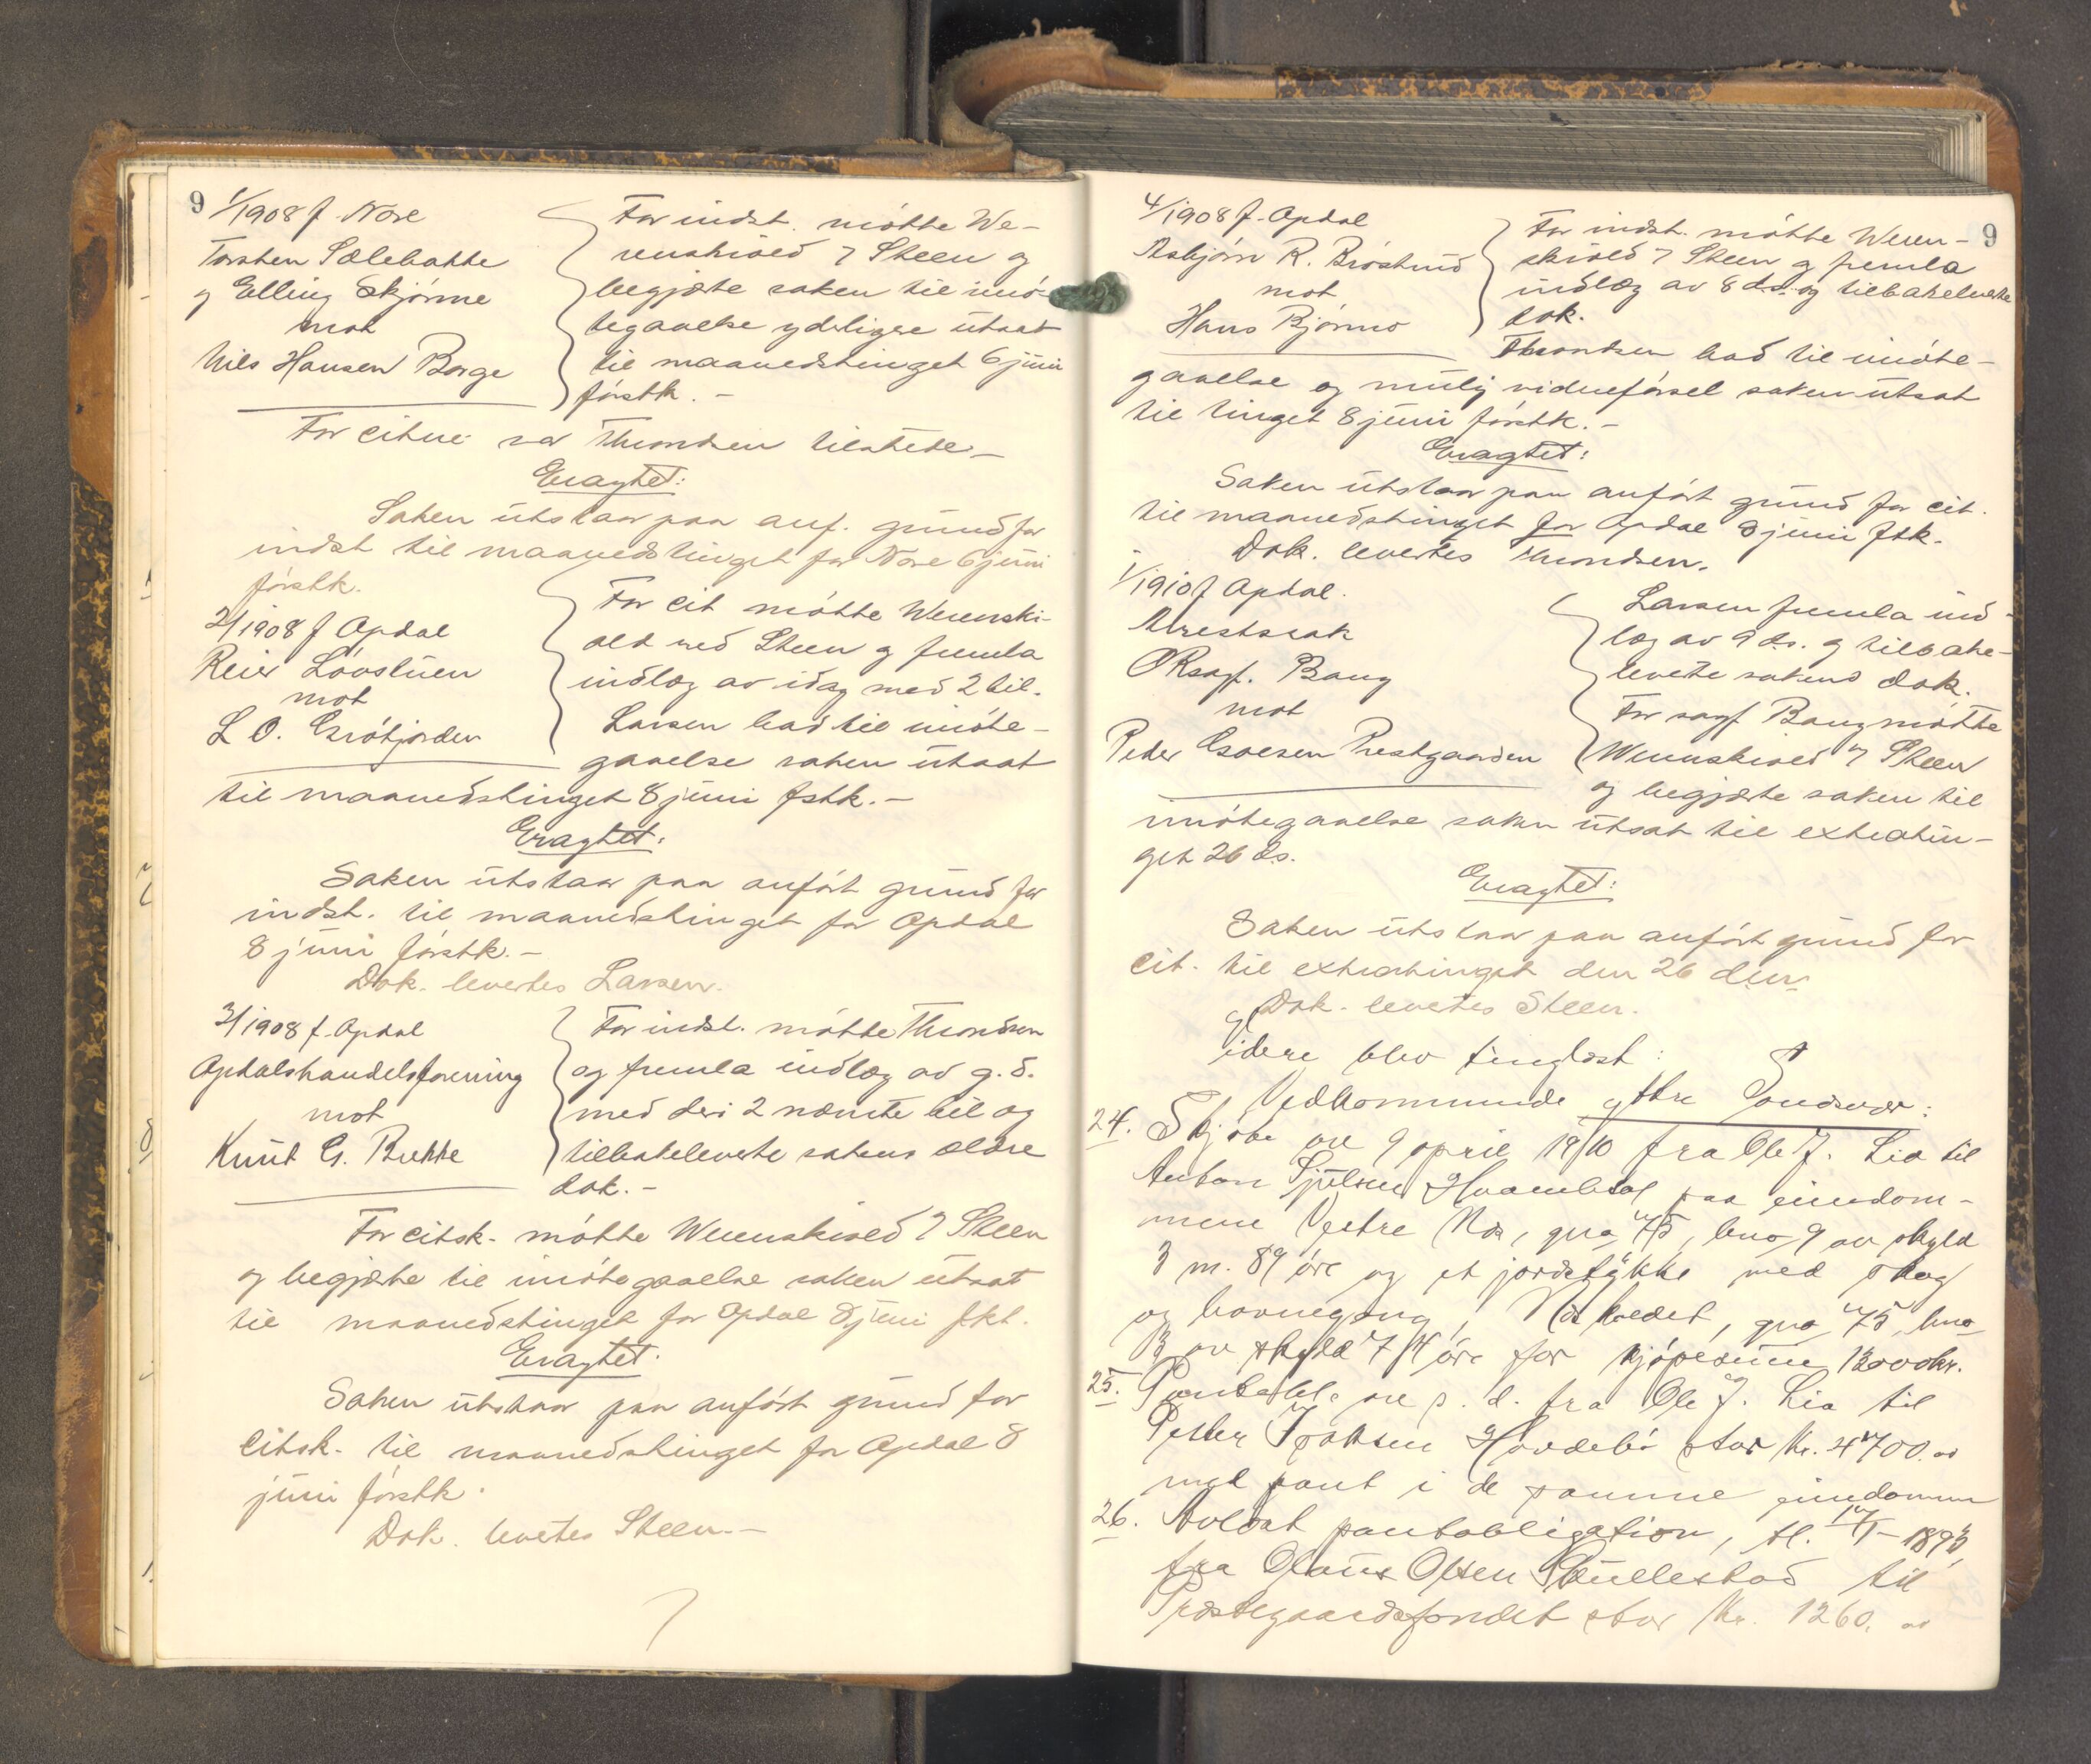 9
1/1908 f. Nore
Torsten Sælebakke
og Elling Skjönne
mot
Nils Hansen Borge
For indst. mötte We-
renskiold v Steen og
begjærte saken til imö-
tegaaelse yderligere utsat
til maanedstinget 6 juni
förstk. -
For citne var Throndsen tilstede -
Eragtet:
Saken utstaar paa anf. grund for
indst til maanedstinget for Nore 6 juni
förstk.
2/1908 f Opdal
Reier Lövstuen
mot
L O. Grötjorden
For cit mötte Werenski-
old ved Steen og fremla
indlæg av idag med 2 bil.
Larsen bad til imöte-
gaaelse saken utsat
til maanedstinget 8 juni fstk. -
Eragtet:
Saken utstaar paa anfört grund for
indst. til maanedstinget for Opdal
8 juni förstk. -
Dok. levertes Larsen.
3/1908 f. Opdal
Opdalshandelsforening
mot
Knut G. Bekke
For indst. mötte Throndsen
og fremla indlæg av g. d.
med deri 2 nævnte bil og
tilbakeleverte sakens ældre
dok. -
For citsk. mötte Werenskiold v Steen
og begjærte til imötegaaelse saken utsat
til maanedstinget for Opdal 8 juni fkt.
Eragtet:
Saken utstaar paa anfört grund for
Citsk. til maanedstinget for Opdal 8
juni förstk.
Dok. levertes Steen. -
9
4/1908 f. Opdal
Asbjörn R. Bröstrud
mot
Hans Björnmo
For indst. mötte Weren-
skiold v Steen og fremla
indlæg av 8 ds. og tilbakeleverte
dok.
Throndsen bad til imöte-
gaaelse og mulig vidneförsel saken utsat
til tinget 8 juni förstk. -
Eragtet:
Saken utstaar paa anfört grund for cit.
til maanedstinget for Opdal 8 juni fstk.
Dok. levertes Throndsen.
1/1910 f Opdal.
Arrestsak
ORsagf. Bang
mot
Peder Olsen Prestgaarden
Larsen fremla ind-
læg av 9 ds. og tilbake-
leverte sakens dok.
For sagf Bang mötte
Werenskiold v Steen
og begjærte saken til
imötegaaelse saken utsat til extratin-
get 26 ds.
Eragtet:
Saken utstaar paa anfört grund for
cit. til extratinget den 26 dens
Dok. levertes Steen.
videre blev tinglæst:
Vedkommende ytre Sandsvær:
24. Skjöte av 9 april 1910 fra Ole J. Lia til
Anton Hvambsal paa eiendom-
mene Vestre Næs, gno 75, bno 9 av skyld
3 m. 89 öre og et jordstykke med skog
og havnegang, gno 75 bno
13 av skyld 714 öre for kjöpesum 13000 kr.
25. Pantobl. av s. d. fra Ole J. Lia til
Peder Hovdebö stor kr. 4700.00
med pant i de samme eiendomme
26. Avlæst pantobligation, tl.
fra Olaus Olsen Skullestad til
Præstegaardsfondet stor kr. 1260.00